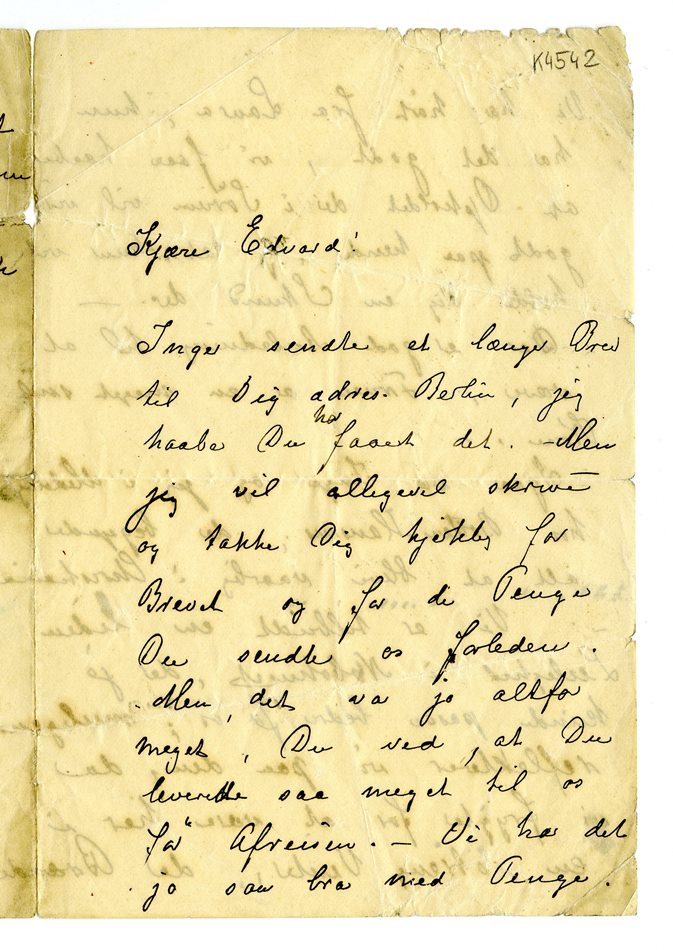 K4542
Kjære Edvard!
Inger sendte et længe Brev
til Dig adres. Berlin, jeg
haabe Du har faaet det. – Men
jeg vil allegevel skrive
og takke Dig hjertelig for
Brevet og for de Penge
Du sendte os forleden.
Men, det va jo altfor
meget, Du ved, at Du
leverette saa meget til os
før Afreisen. – Vi har det
jo saa bra med Penge.